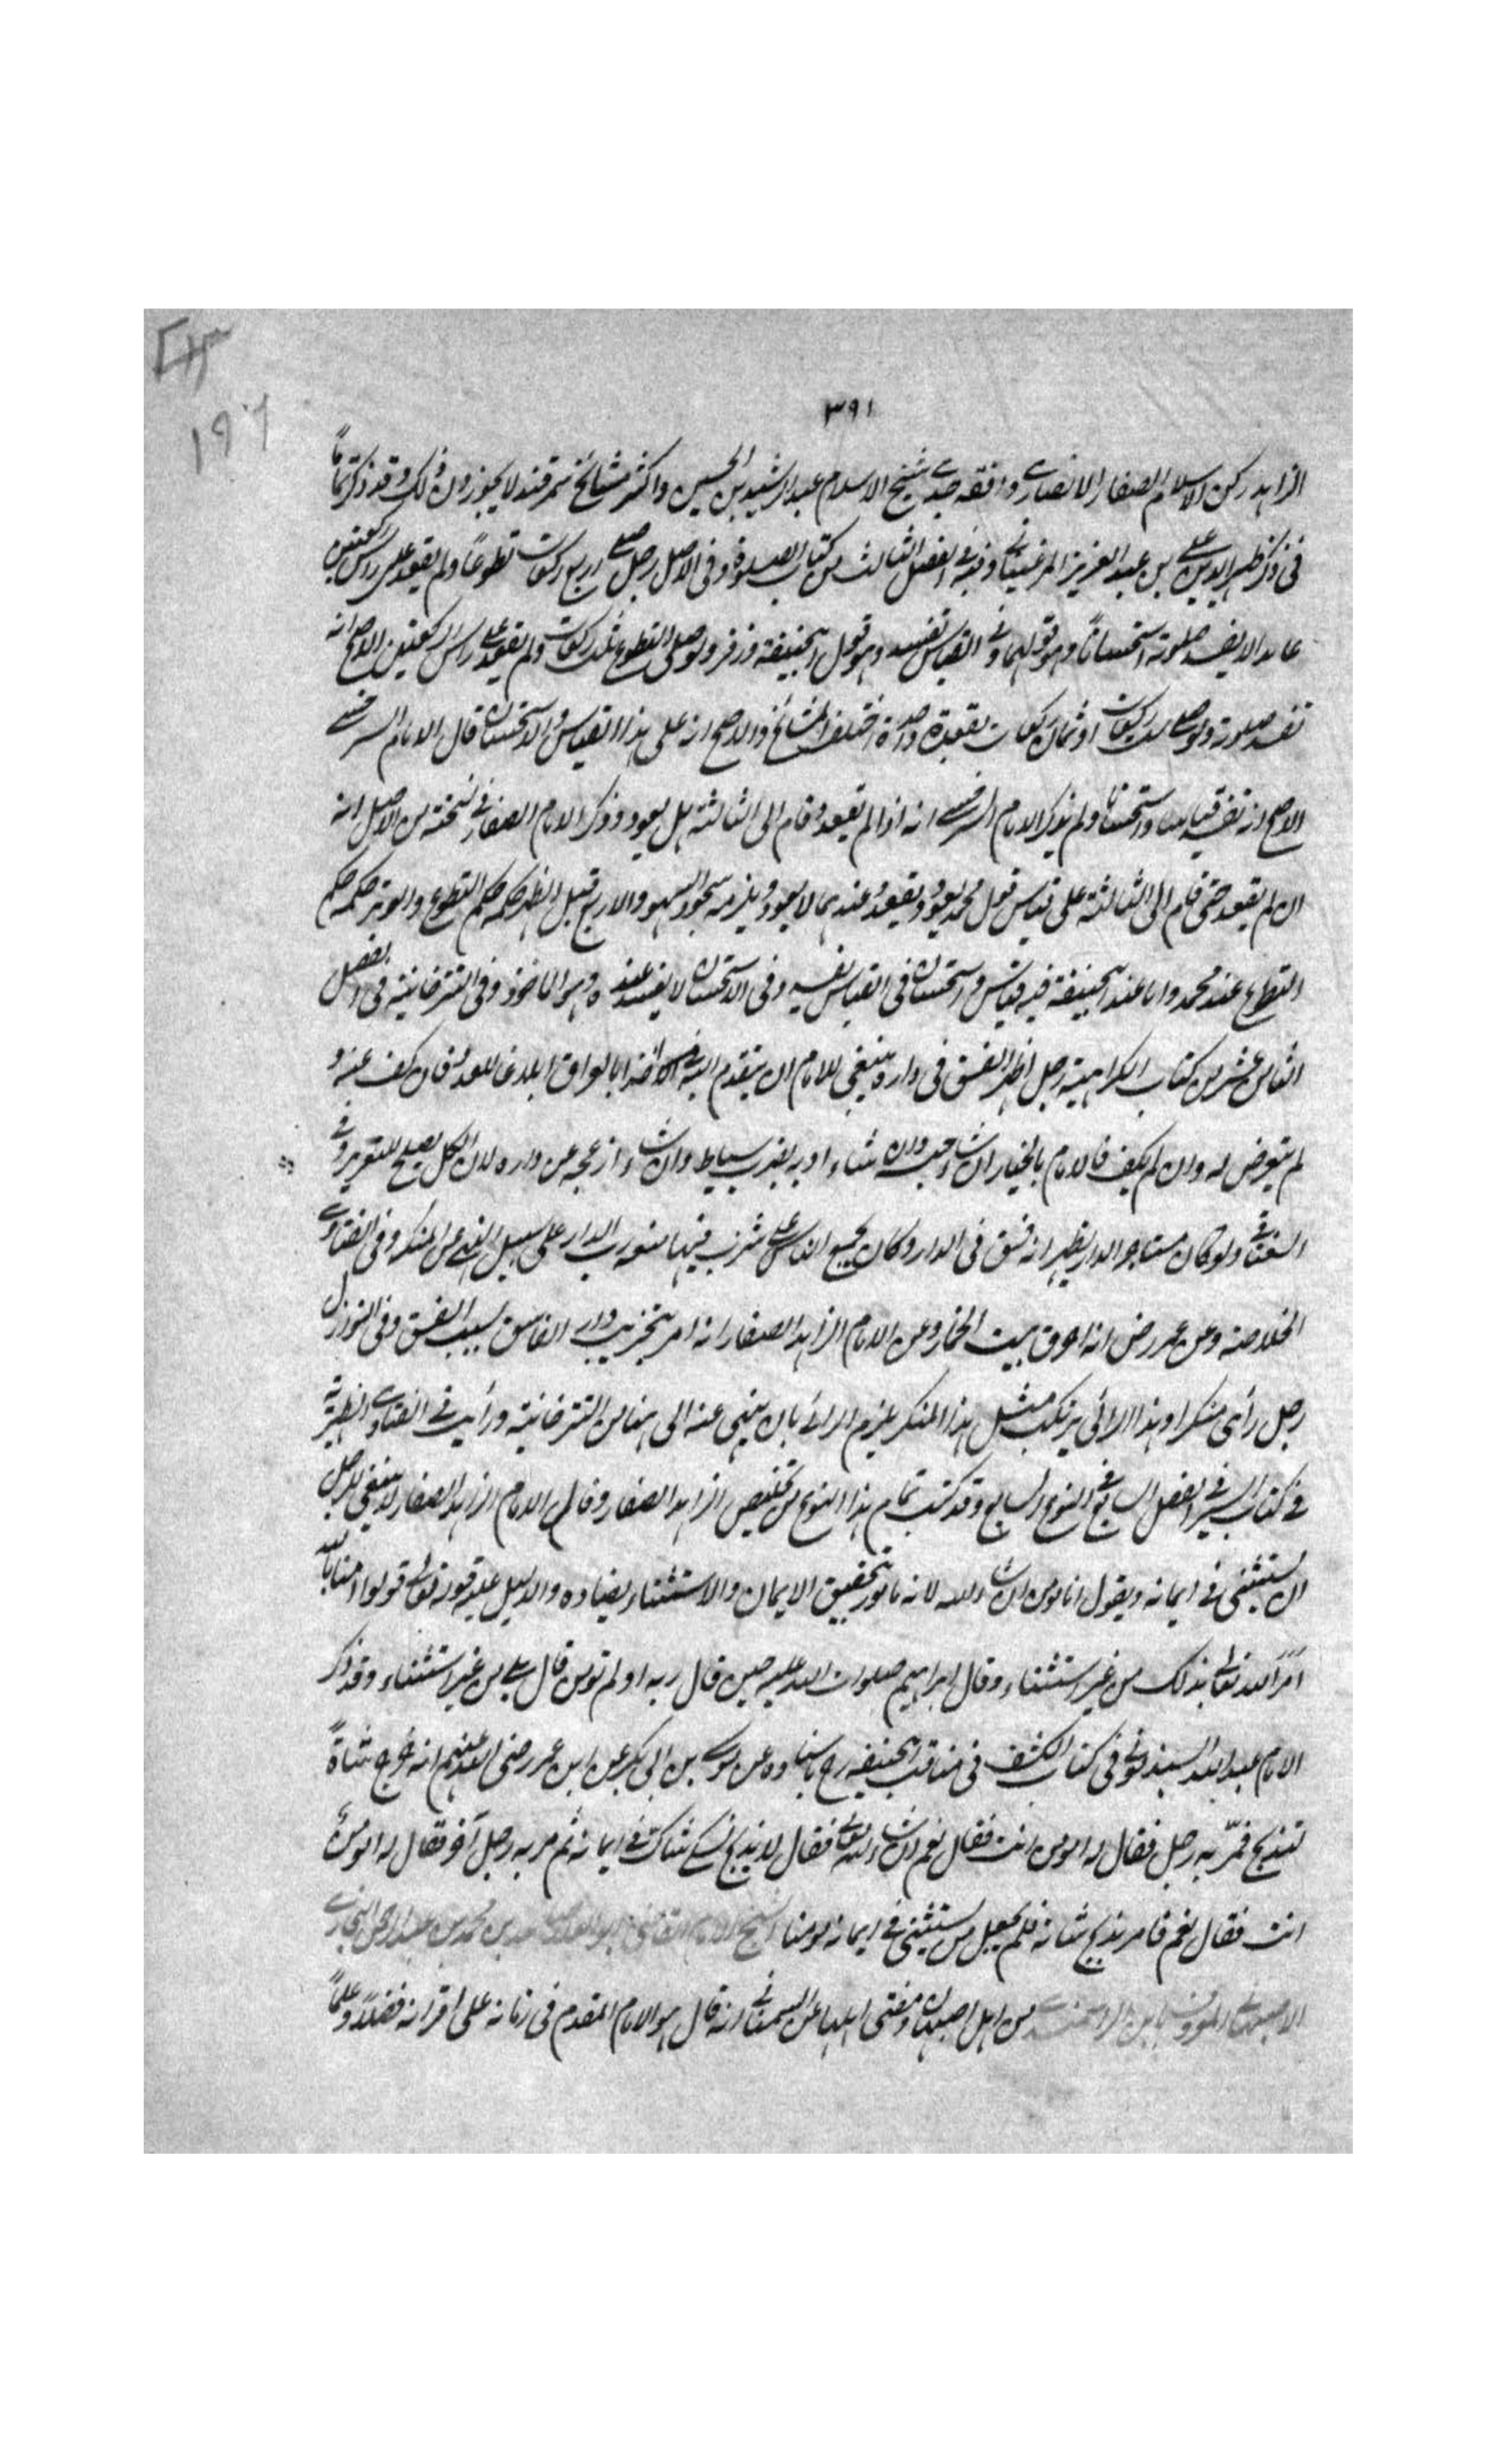 ٣٩١
١٩٦
الزاهد ركن الاسلام الصفار الانصارى وافقه جدى شيخ الاسلام عبد الرشيد بن الحسين واكثر مشائخ سمرقند لا يجوزون ذلك وقد ذكر تماما
فى ذكر ظهير الدين على بن عبد العزيز المرغينانى وفيه فى الفصل الثالث من كتاب الصلوة وفى الاصل رجل صلى اربع ركعات تطوعاً ولم يقعد على راس الركعتين
عامدا لا يفسد صلوته استحساناً وهو قولهما وفى القياس تفسد وهو قول ابيحنيفة وزفر ولو صلى التطوع ثلث ركعات ولم يقعد على راس الركعتين الاصح انه
تفسد صلوته ولو صلى ست ركعات او ثمان ركعات بقعدة واحدة اختلف المشائخ والاصح انه على هذا القياس والاستحسان قال الامام السرخسى
الاصح انه تفسد قياسا واستحسانا ولم يذكر الامام السرخسى انه اذا لم يقعد وقام الى الثالثة هل يعود وذكر الامام الصفار فى نسخته من الاصل انه
ان لم يقعد حتى قام الى الثالثة على قياس قول محمد يعود ويقعد وعندهما لا يعود ويلزمه سجود السهو والاربع قبل الظهر حكمه حكم التطوع والوتر حكمه حكم
التطوع عند محمد واما عند ابيحنيفة فيه قياس واستحسان فى القياس تفسد وفى الاستحسان لا يفسد عنده وهو الماخوذ وفى التترخانية فى الفصل
الثامن عشر من كتاب الكراهية رجل اظهر الفسق فى داره ينبغى للامام ان يتقدم اليه ابلاغا للعذر فان كف عنه و
لم يتعرض له وان لم يكف فالامام بالخيار ان شاء حبسه وان شاء ادبه بضرب سياط وان شاء ازعجه عن داره لان الكل يصلح للتعزير وفى
السغناقى ولو كان مستاجر الدار يظهر انه فسق فى الدار وكان يجمع الناس على شرب فيها منعه رب الدار على سبيل النهى عن المنكر وفى الفتاوى
الخلاصة وعن عمر رض انه احرق بيت الخمار وعن الامام الزاهد الصفار انه امر بتخريب دار الفاسق بسبب الفسق وفى النوازل
رجل رأى منكرا وهذا الرائى يرتكب مثل هذا المنكر يلزم الرائى بان ينهى عنه الى هنا من التترخانية ورأيت فى الفتاوى الظهيرية
فى كتاب السير فى الفصل السابع فى النوع السابع وقد كتب تمام هذا النوع من تلخيص الزاهد الصفار وقال الامام الزاهد الصفار لا ينبغى للرجل
ان يستثنى فى ايمانه ويقول انا مؤمن ان شاء الله لانه مامور بتحقيق الايمان والاستثناء يضاده والدليل عليه قوله تعالى قولوا امنا بالله
امر الله تعالى بذلك من غير استثناء وقال ابراهيم صلوات الله عليه حين قال ربه او لم تؤمن قال بلى من غير استثناء وقد ذكر
الامام عبد الله السبذمونى فى كتاب الكشف فى مناقب ابيحنيفة رح باسناده عن موسى بن ابى بكر عن ابن عمر رضى الله عنهم انه خرج شاةً
لتذبح فمرّ به رجل فقال له امؤمن انت فقال نعم ان شاء الله تعالى فقال لا يذبح نسكى شاك فى ايمانه ثم مر به رجل آخر فقال له امؤمن
انت فقال نعم فامر بذبح شاته فلم يجعل من يستثنى فى ايمانه مؤمنا الشيخ الامام القاضى ابو العلا صاعد بن محمد بن عبد الرحمن البخارى
الاصبهانى المعروف بابن من اهل اصبهان ومفتى اهلها عن السمعانى انه قال هو الامام المقدم فى زمانه على اقرانه فضلاً وعلماً